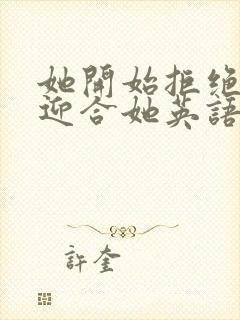 她開始拒絕
迎合她英語
許奎